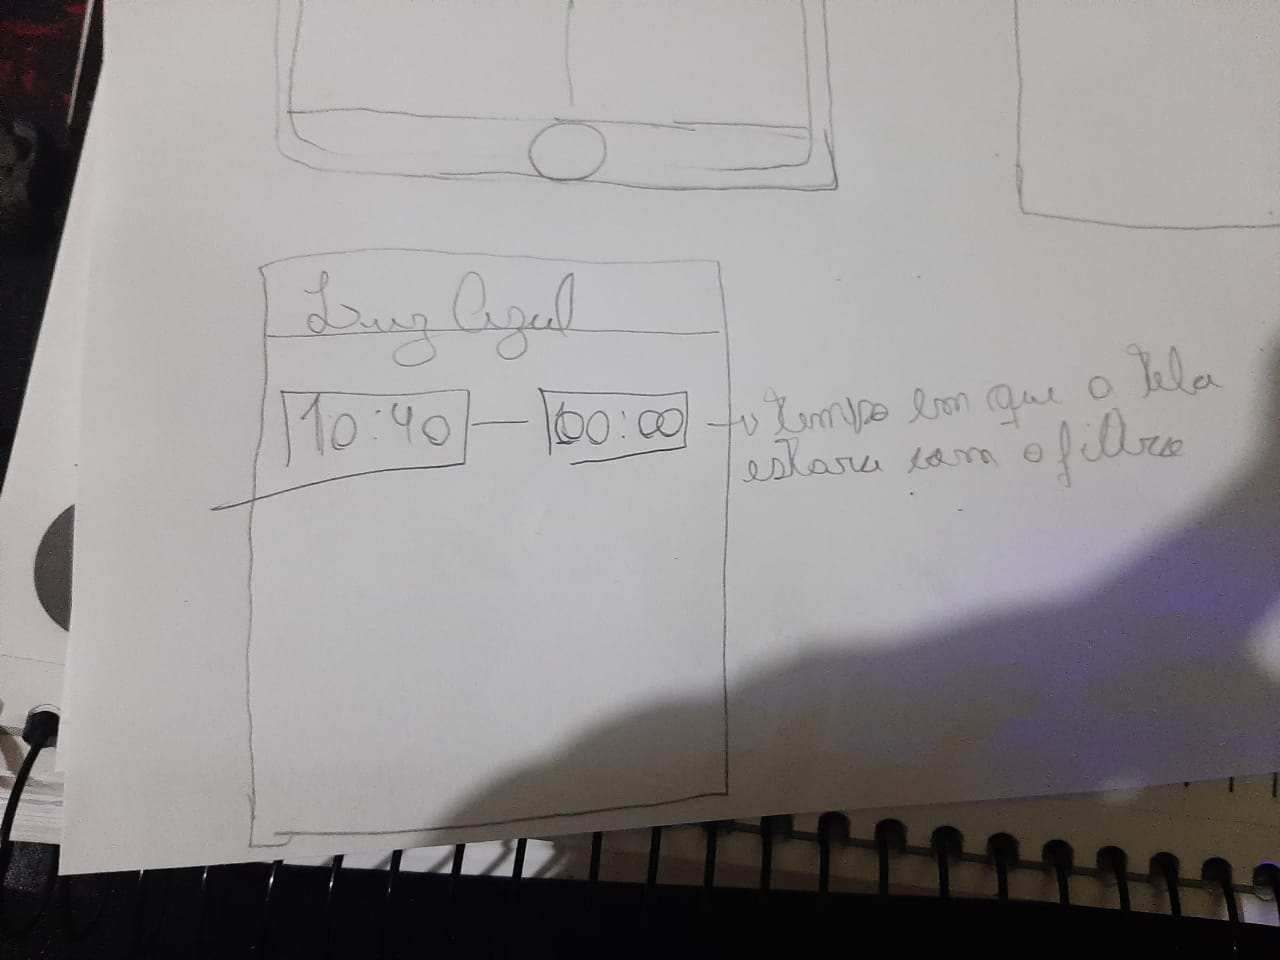 Luz Azul
10:40 — 00:00 → tempo em que a tela
estara com o filtro